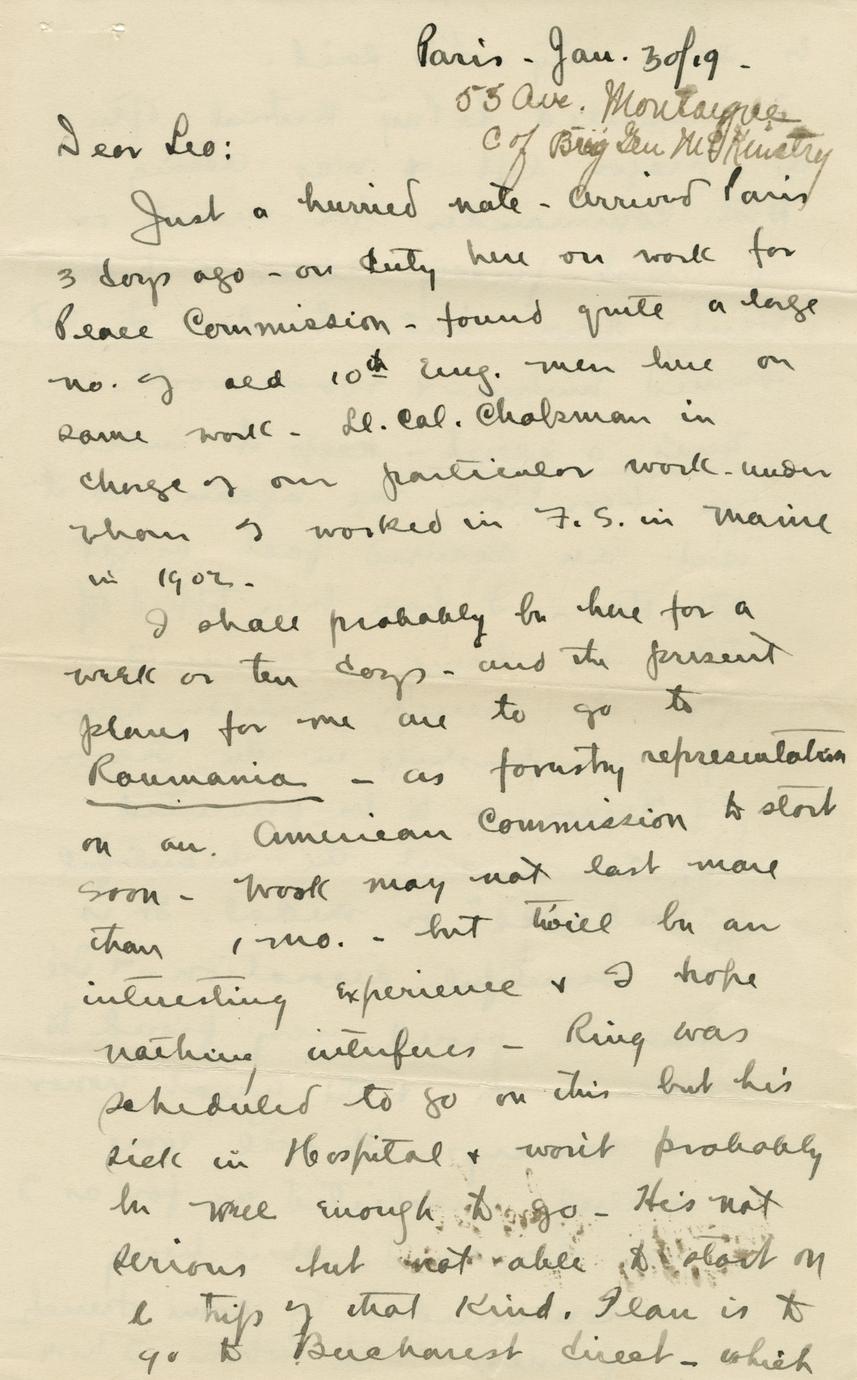 Paris - Jan. 30/19 -
53 Ave. Montaigne
C of Brig Gen McKinstry
Dear Leo:
Just a hurried note - arrived Paris
3 days ago - on duty here on work for
Peace Commission - found quite a large
no. of old 10th Eng. men here on
same work - Lt. Col. Chapman in
charge of our particular work - under
whom I worked in F.S. in Maine
in 1902 -
I shall probably be here for a
week or ten days - and the present
plans for me are to go to
Roumania - as forestry representative
on an American Commission to start
soon - Work may not last more
than 1 mo. - but twill be an
interesting experience & I hope
nothing interferes - Ring was
scheduled to go on this but he's
sick in Hospital & won't probably
be well enough to go - He's not
serious but not able to start on
a trip of that kind. Plan is to
go to Bucharest direct - which